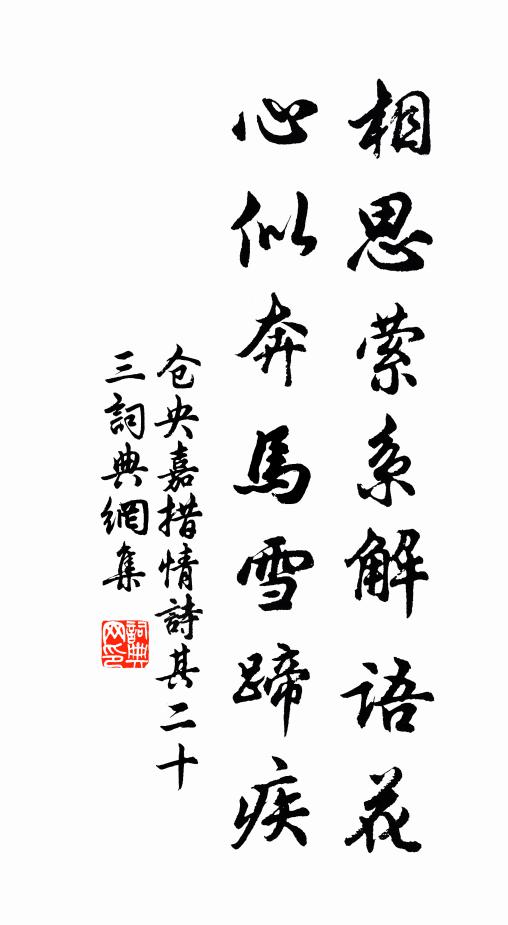 相思萦系解语花
心似奔馬雪蹄疾
仓央嘉措情詩其二十
三詞典網集
詞典网印